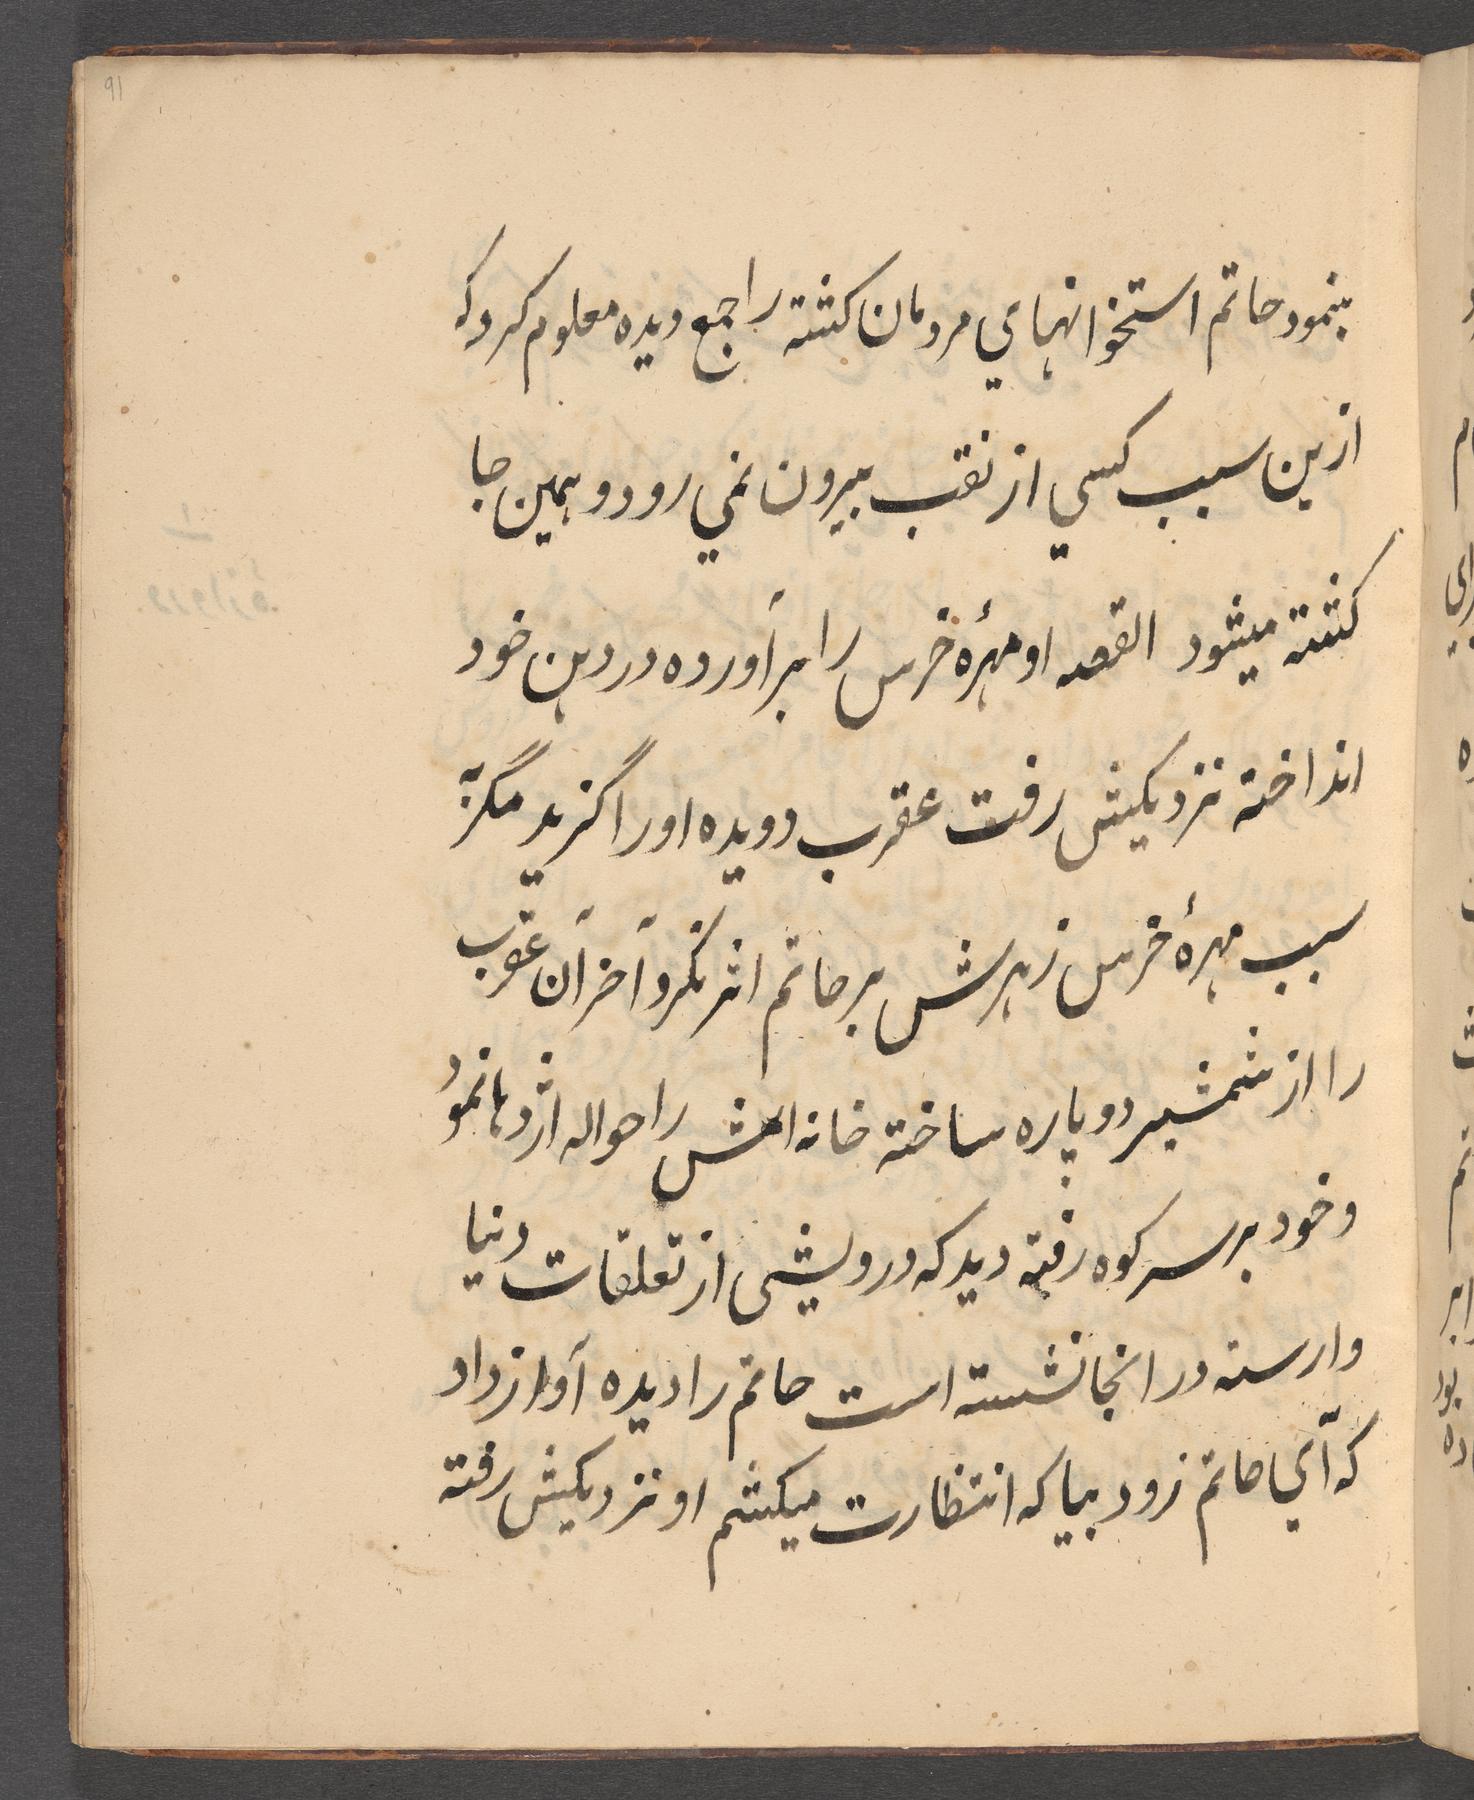 91
بنمود حاتم استخوانهاي مردمان كشته را جمع ديده معلوم كرد كه
ازين سبب كسي از نقب بيرون نمي رود و همين جا
كشته ميشود القصه او مهرهٔ خرس را برآورده در دهن خود
انداخته نزديكيش رفت عقرب دويده او را گزيد مگر به
سبب مهرهٔ خرس زهرش بر حاتم اثر نكرد آخر آن عقرب
را از شمشير دو پاره ساخته خانه اش را حواله اژدها نمود
و خود بر سر كوه رفته ديد كه درويشى از تعلقات دنيا
وارسته در انجا نشسته است حاتم را ديده آواز داد
كه اَي حاتم زود بيا كه انتظارت ميكشم او نزديكش رفته